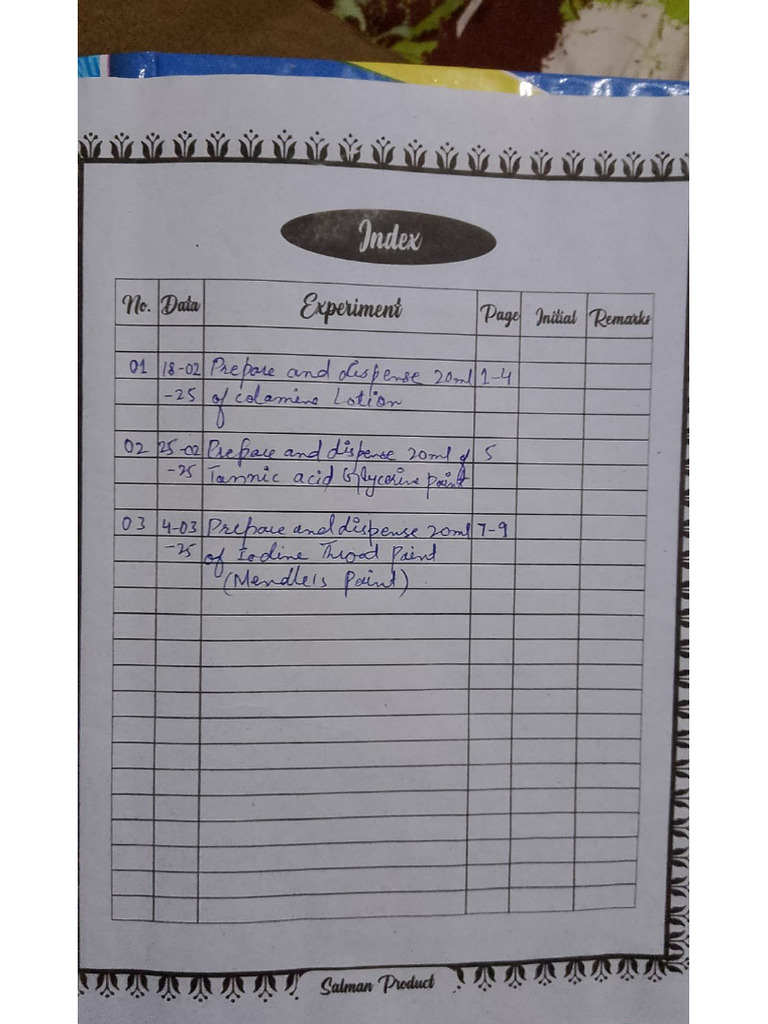 Index
No. Data Experiment Page Initial Remarks
01 18-02 Prepare and dispense 20ml 1-4
-25 of calamine Lotion
02 25-02 Prepare and dispense 20ml of 5
-25 Tannic acid Glycerine paint
03 4-03 Prepare and dispense 20ml 7-9
-25 of Iodine Throat Paint
(Mendle's Paint)
Salman Product